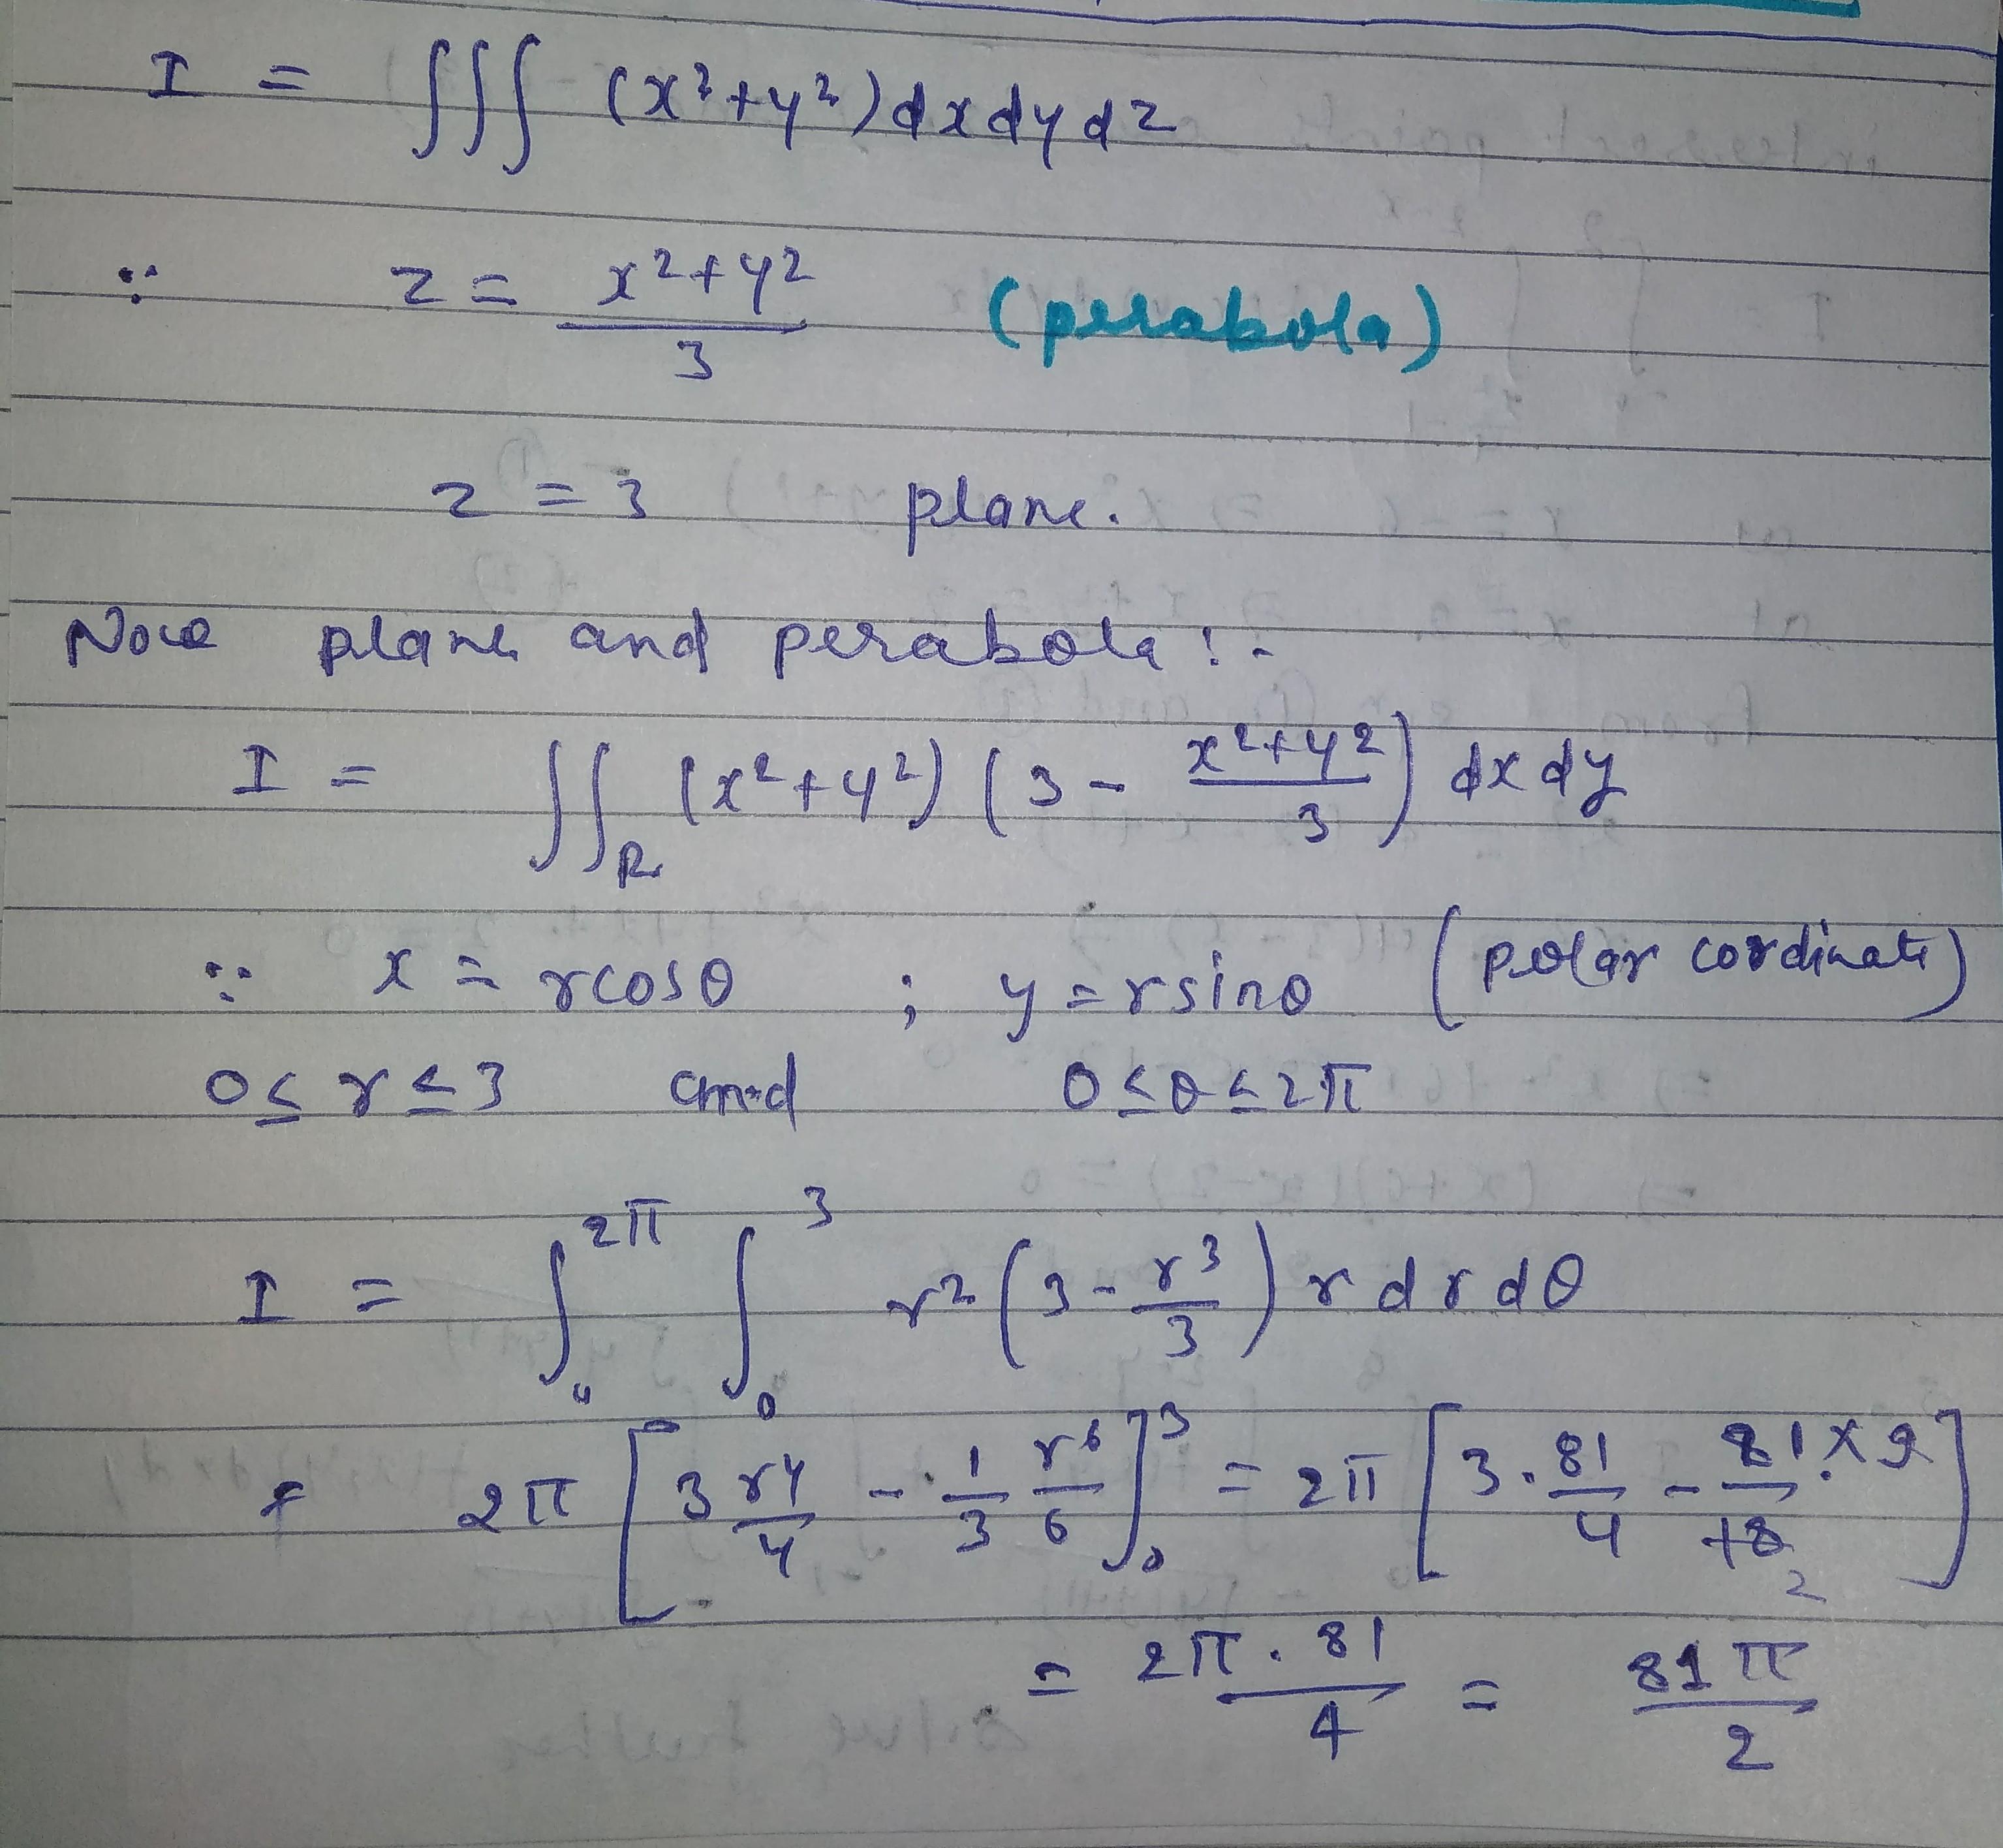 I = ∫∫∫ (x²+y²) dx dy dz
∵ z = (x²+y²)/3 (perabola)
z = 3 plane.
Now plane and perabola :-
I = ∫∫_R (x²+y²) (3 - (x²+y²)/3) dx dy
∵ x = rcosθ ; y = rsinθ (polar cordinate)
0 ≤ r ≤ 3 and 0 ≤ θ ≤ 2π
I = ∫₀^2π ∫₀^3 r² (3 - r³/3) r dr dθ
= 2π [3 r⁴/4 - 1/3 r⁶/6]₀³ = 2π [3·81/4 - 81×9/18 2]
= 2π·81/4 = 81π/2